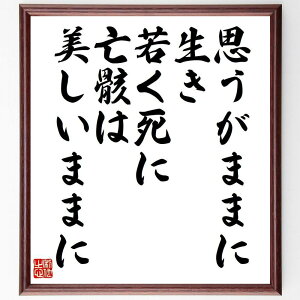 思うがままに
生き
若く死に
亡骸は
美しいままに